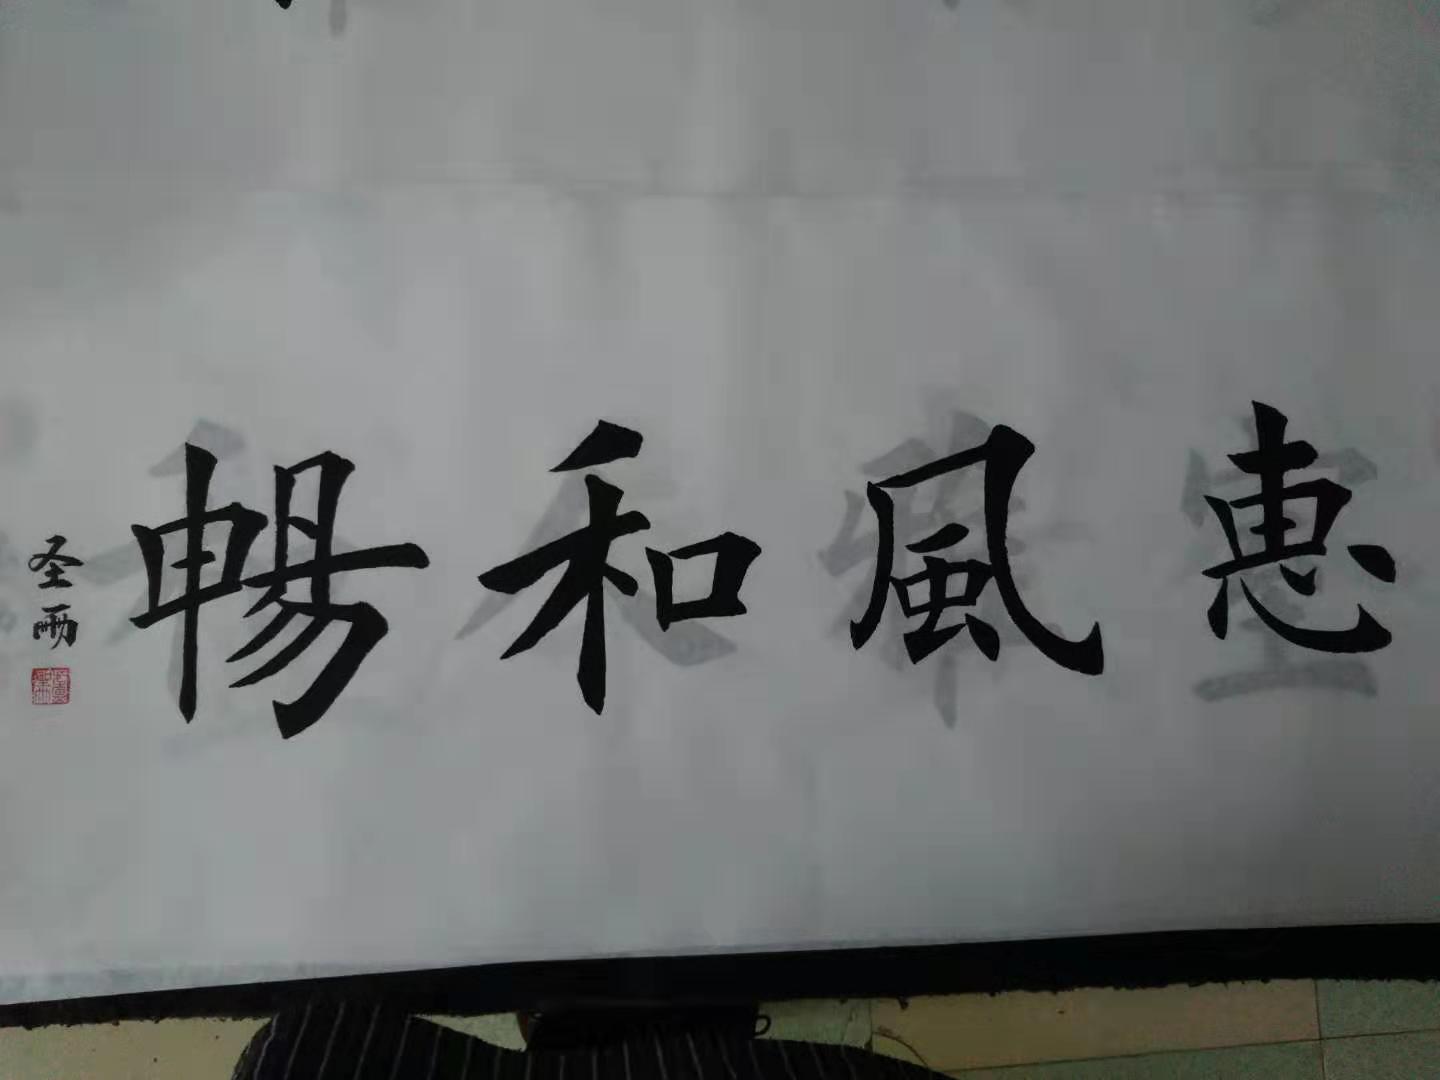 惠風和暢
圣雨